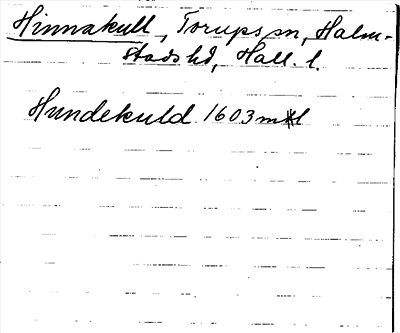 Hinnakull, Torups sn, Halm-
stads hd, Hall. l.
Hundekuld 1603 mtl